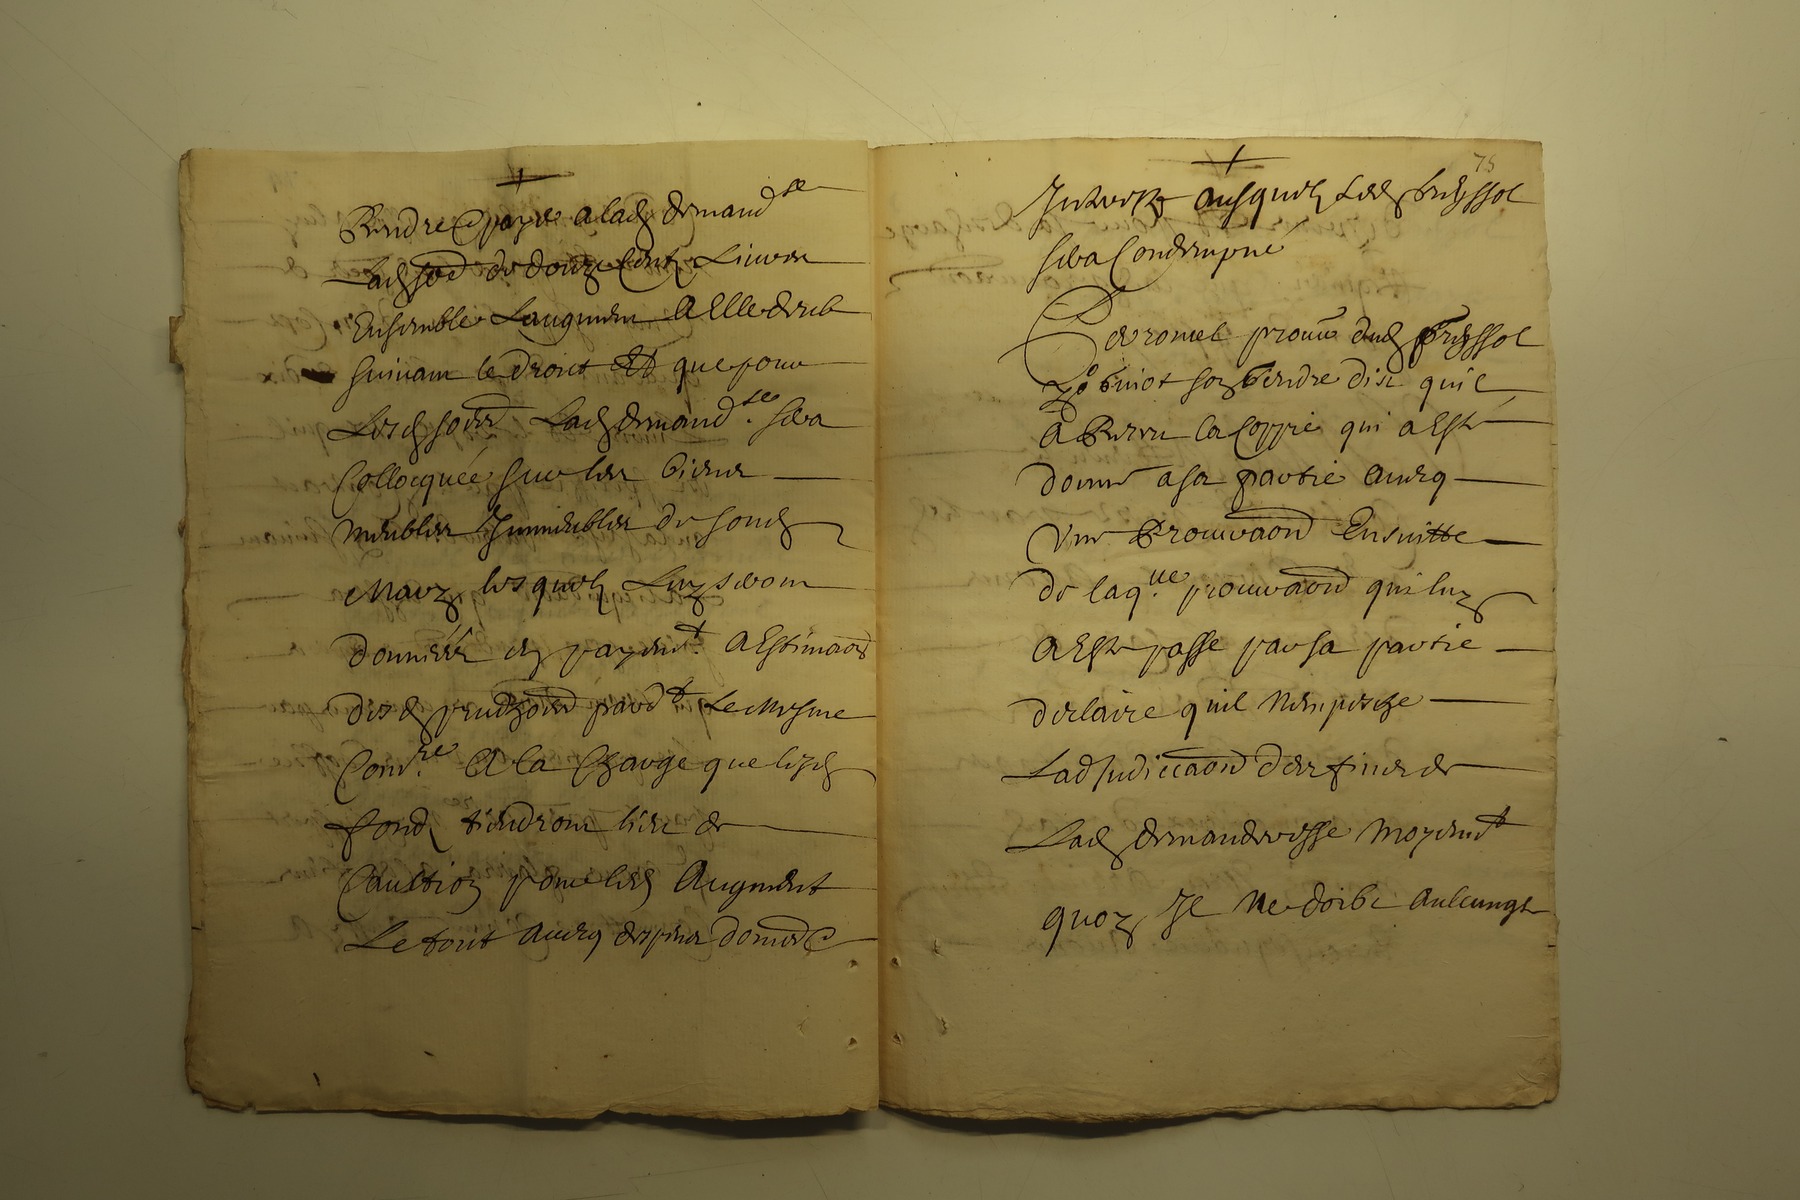 Rendre & payer a lad demand.se
Lad som̄e de douze Centz Livres
Ensemble Laugment A Elle deub
suivant le droict Et que pour
Lesd som̄es Lad demand.se sera
Collocquée sur les biens
meubles Immeubles de sond
Mary lesquelz Luy seront
donnés en payem.t a Estimaōn
des prudhomes pard.t Le mesme
Com.re A la Charge que lesd
fond tiendront lieu de
Caultion pour led Augment
Le tout avecq despens dom̄es &
Interestz Ausquelz Led
sera Condempné
prour dud
dict quil
A Receu la Coppie qui a Esté
donné a sa partie avecq
Une Prouuaōn Ensuitte
de laq.lle prouuaōn qui luy
A Esté passé par sa partie
declaire quil N'empesche
Ladjudiccaōn des fins de
Lad demanderesse moyent
quoy Il Ne doibt Aulcungs
75